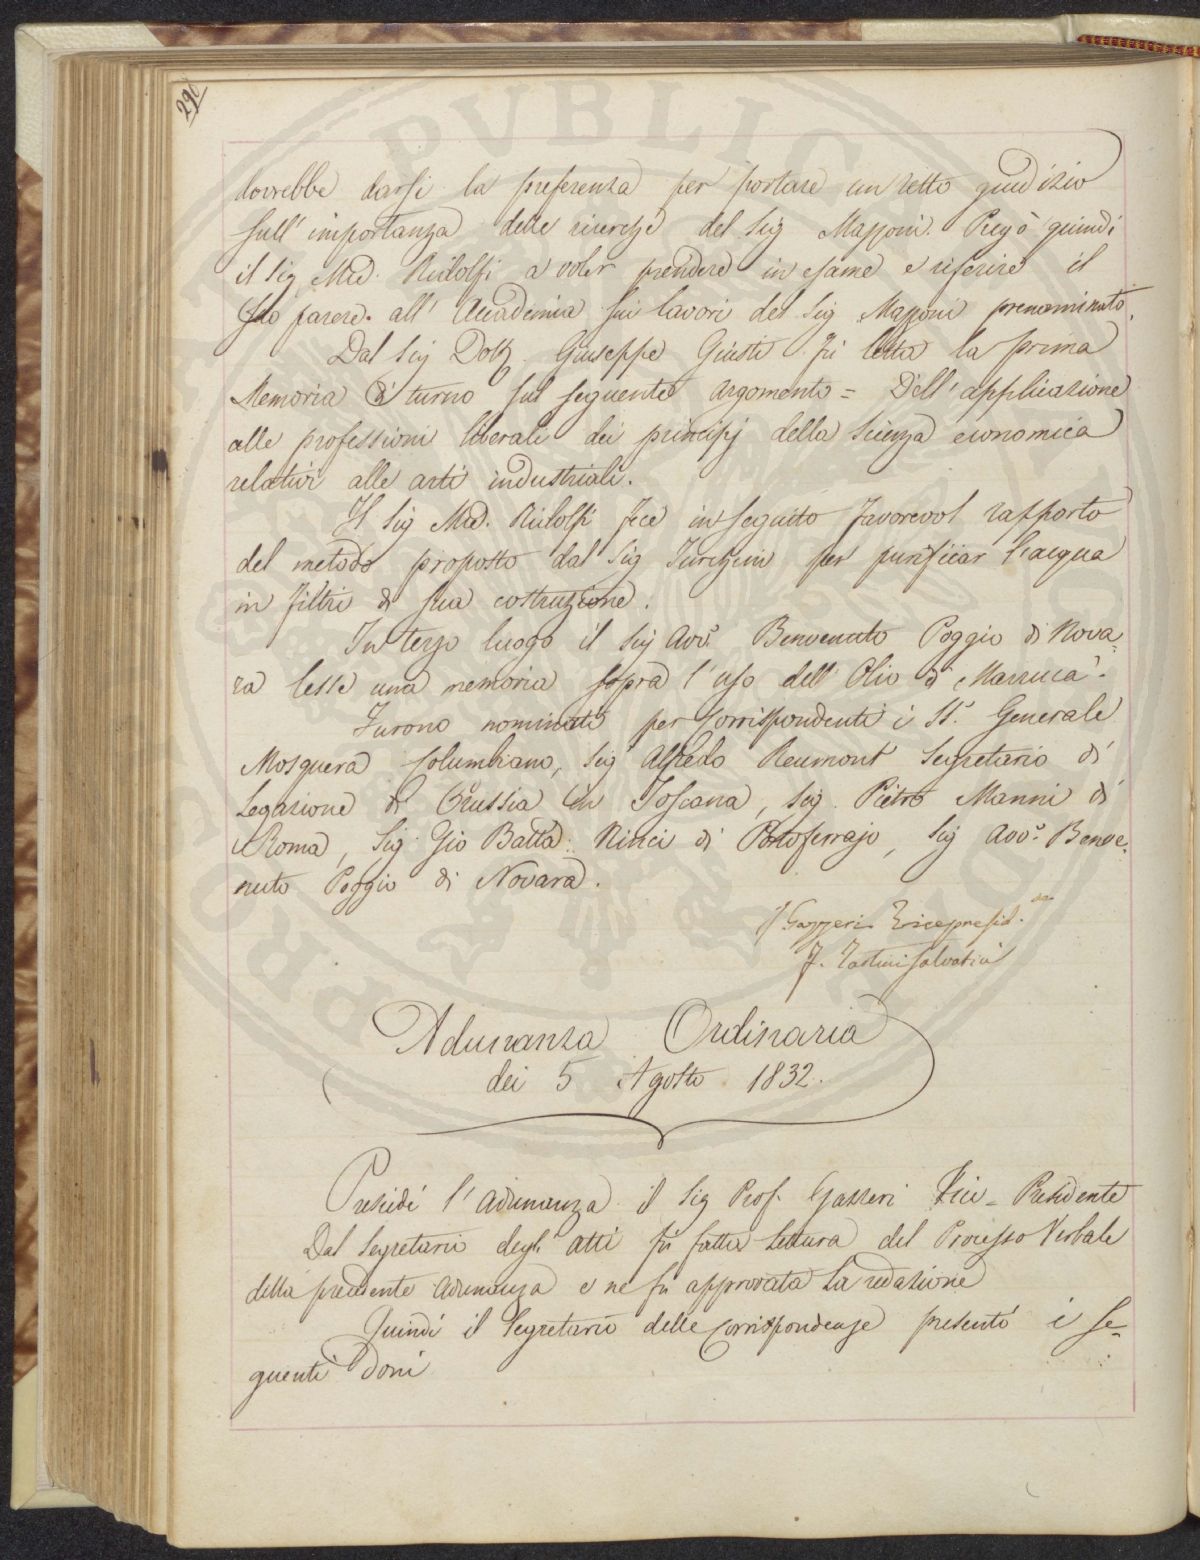 290
dovrebbe darsi la preferenza per portare un retto giudizio
sull' importanza delle ricerche del Sig Mazzoni. Pregò quindi
il Sig Md. Ridolfi a voler prendere in esame e riferire il
Suo parere all' Accademia sui lavori del Sig Mazzoni prenominato.
Dal Sig Dott. Giuseppe Giusti fu letta la prima
Memoria di turno sul seguente argomento = Dell' applicazione
alle professioni liberali dei principj della Scienza economica
relativi alle arti industriali.
Il Sig Md. Ridolfi fece in seguito favorevol rapporto
del metodo proposto dal Sig Turchini per purificar l'acqua
in filtri di sua costruzione.
In terzo luogo il Sig Avv.º Benvenuto Poggio di Nova-
ra lesse una memoria sopra l'uso dell' Olio di Marruca.
Furono nominati per Corrispondenti i SS.ri Generale
Mosquera Columbiano, Sig Alfredo Reumont Segretario di
Legazione di Prussia in Toscana, Sig. Pietro Manni di
Roma, Sig. Gio Batta. Ninci di Portoferrajo, Sig Avv.º Benve-
nuto Poggio di Novara.
Gazzeri Vicepresid.
F. Tartini Salvatici
Adunanza Ordinaria
dei 5 Agosto 1832.
Presiedé l' adunanza il Sig Prof. Gazzeri Vice-Presidente
Dal Segretario degli Atti fu fatta Lettura del Processo Verbale
della precedente adunanza e ne fu approvata la redazione
Quindi il Segretario delle Corrispondenze presentò i se-
guenti Doni
PVBLICA